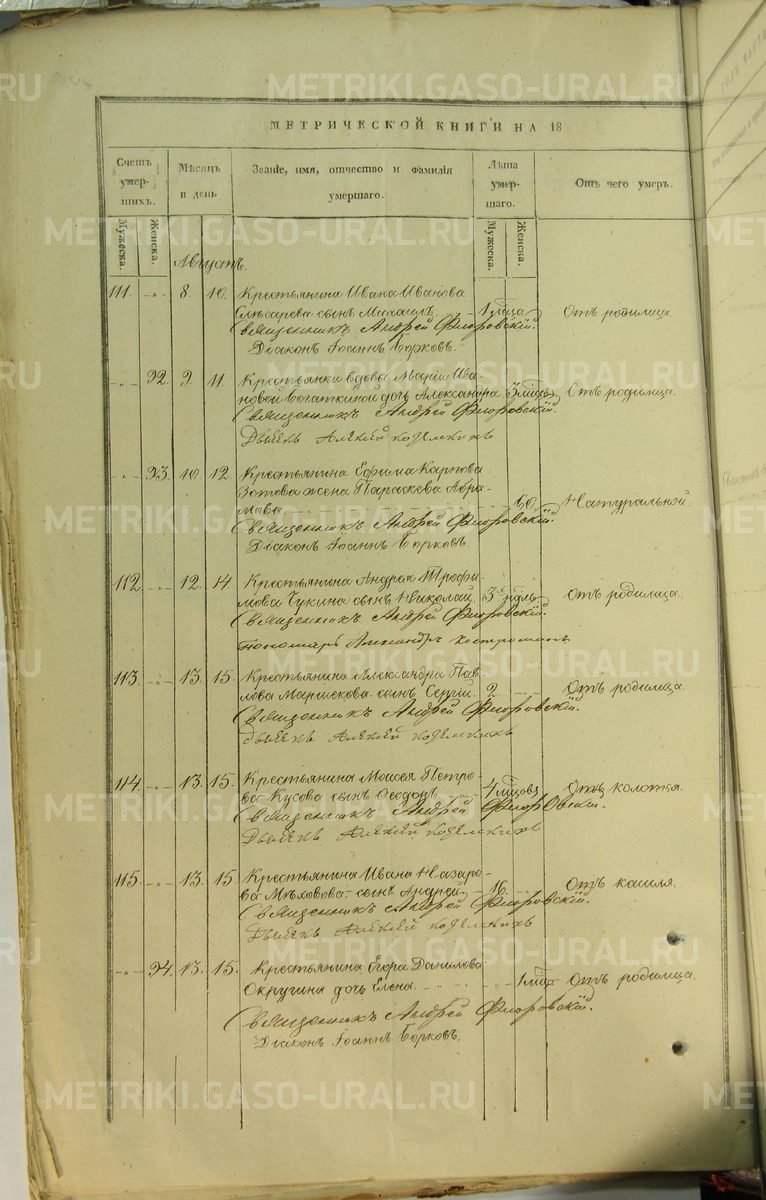 METRIKI.GASO-URAL.RU
МЕТРИЧЕСКОЙ КНИГИ НА 18
Счетъ умер- шихъ.
Мѣсяцъ и день
Званіе, имя, отчество и фамилія умершаго.
Лѣта умер- шаго.
Отъ чего умеръ.
Мужеска. Женска.
Мужеска. Женска.
Августъ.
111. -„- 8. 10. Крестьянина Ивана Иванова
Слѣсарева сынъ Михаилъ. 1 мѣсца Отъ родимца.
Священникъ Андрей Флоровскій.
Діаконъ Іоаннъ Борковъ.
-„- 92. 9. 11. Крестьянки вдовы Маріи Ива-
новой Богаткиной дочь Александра 3 мѣсц. Отъ родимца.
Священникъ Андрей Флоровскій.
Дьячекъ Алексѣй
-„- 93. 10. 12. Крестьянина Ефима Карпова
Зотова жена Параскева Абра-
мова. 60. Натуральной
Священникъ Андрей Флоровскій.
Діаконъ Іоаннъ Борковъ.
112. -„- 12. 14. Крестьянина Андрея Трофи-
мова Чукина сынъ Николай 3х нѣдль Отъ родимца.
Священникъ Андрей Флоровскій.
пономарь Александръ Костроминъ.
113. -„- 13. 15. Крестьянина Александра Пав-
лова сынъ Сергій. 2. Отъ родимца.
Священникъ Андрей Флоровскій.
Дьячекъ Алексѣй
114. -„- 13. 15. Крестьянина Моисея Петро-
ва Кусова сынъ Ѳеодоръ 4 мѣсцовъ Отъ колотья.
Священникъ Андрей Флоровскій.
Дьячекъ Алексѣй
115. -„- 13. 15. Крестьянина Ивана Назаро-
ва сынъ Андрей. 16. Отъ кашля.
Священникъ Андрей Флоровскій.
Дьячекъ Алексѣй
-„- 94. 13. 15. Крестьянина Егора Данилова
Округина дочь Елена. 1 мѣс. Отъ родимца.
Священникъ Андрей Флоровскій.
Діаконъ Іоаннъ Борковъ.